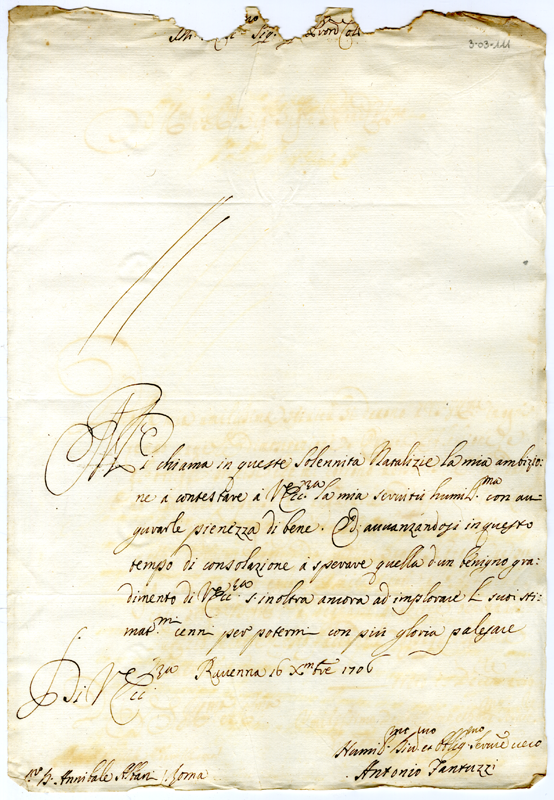 3-03-111
Mi chiama in queste Solennità Natalizie la mia ambizio:
ne a contestare à V. Ecc.za la mia servitù humil.ma con au:
gurarle pienezza di bene. Ed avvanzandosi in questo
tempo di consolazione à sperare quella d'un benigno gra:
dimento di V. Ecc.za s'inoltra ancora ad implorare L suoi sti:
mat.mi cenni per potermi con più gloria palesare
Di V. Ecc.za Ravenna 16 Xmbre 1706
Humil.mo Div.mo et Obblig.mo Serv.re vero
Antonio Fantuzzi
D. Annibale Albani Roma